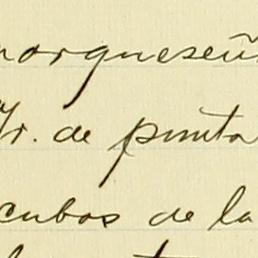 porqueseñ
Yr. de punta
cubos de la